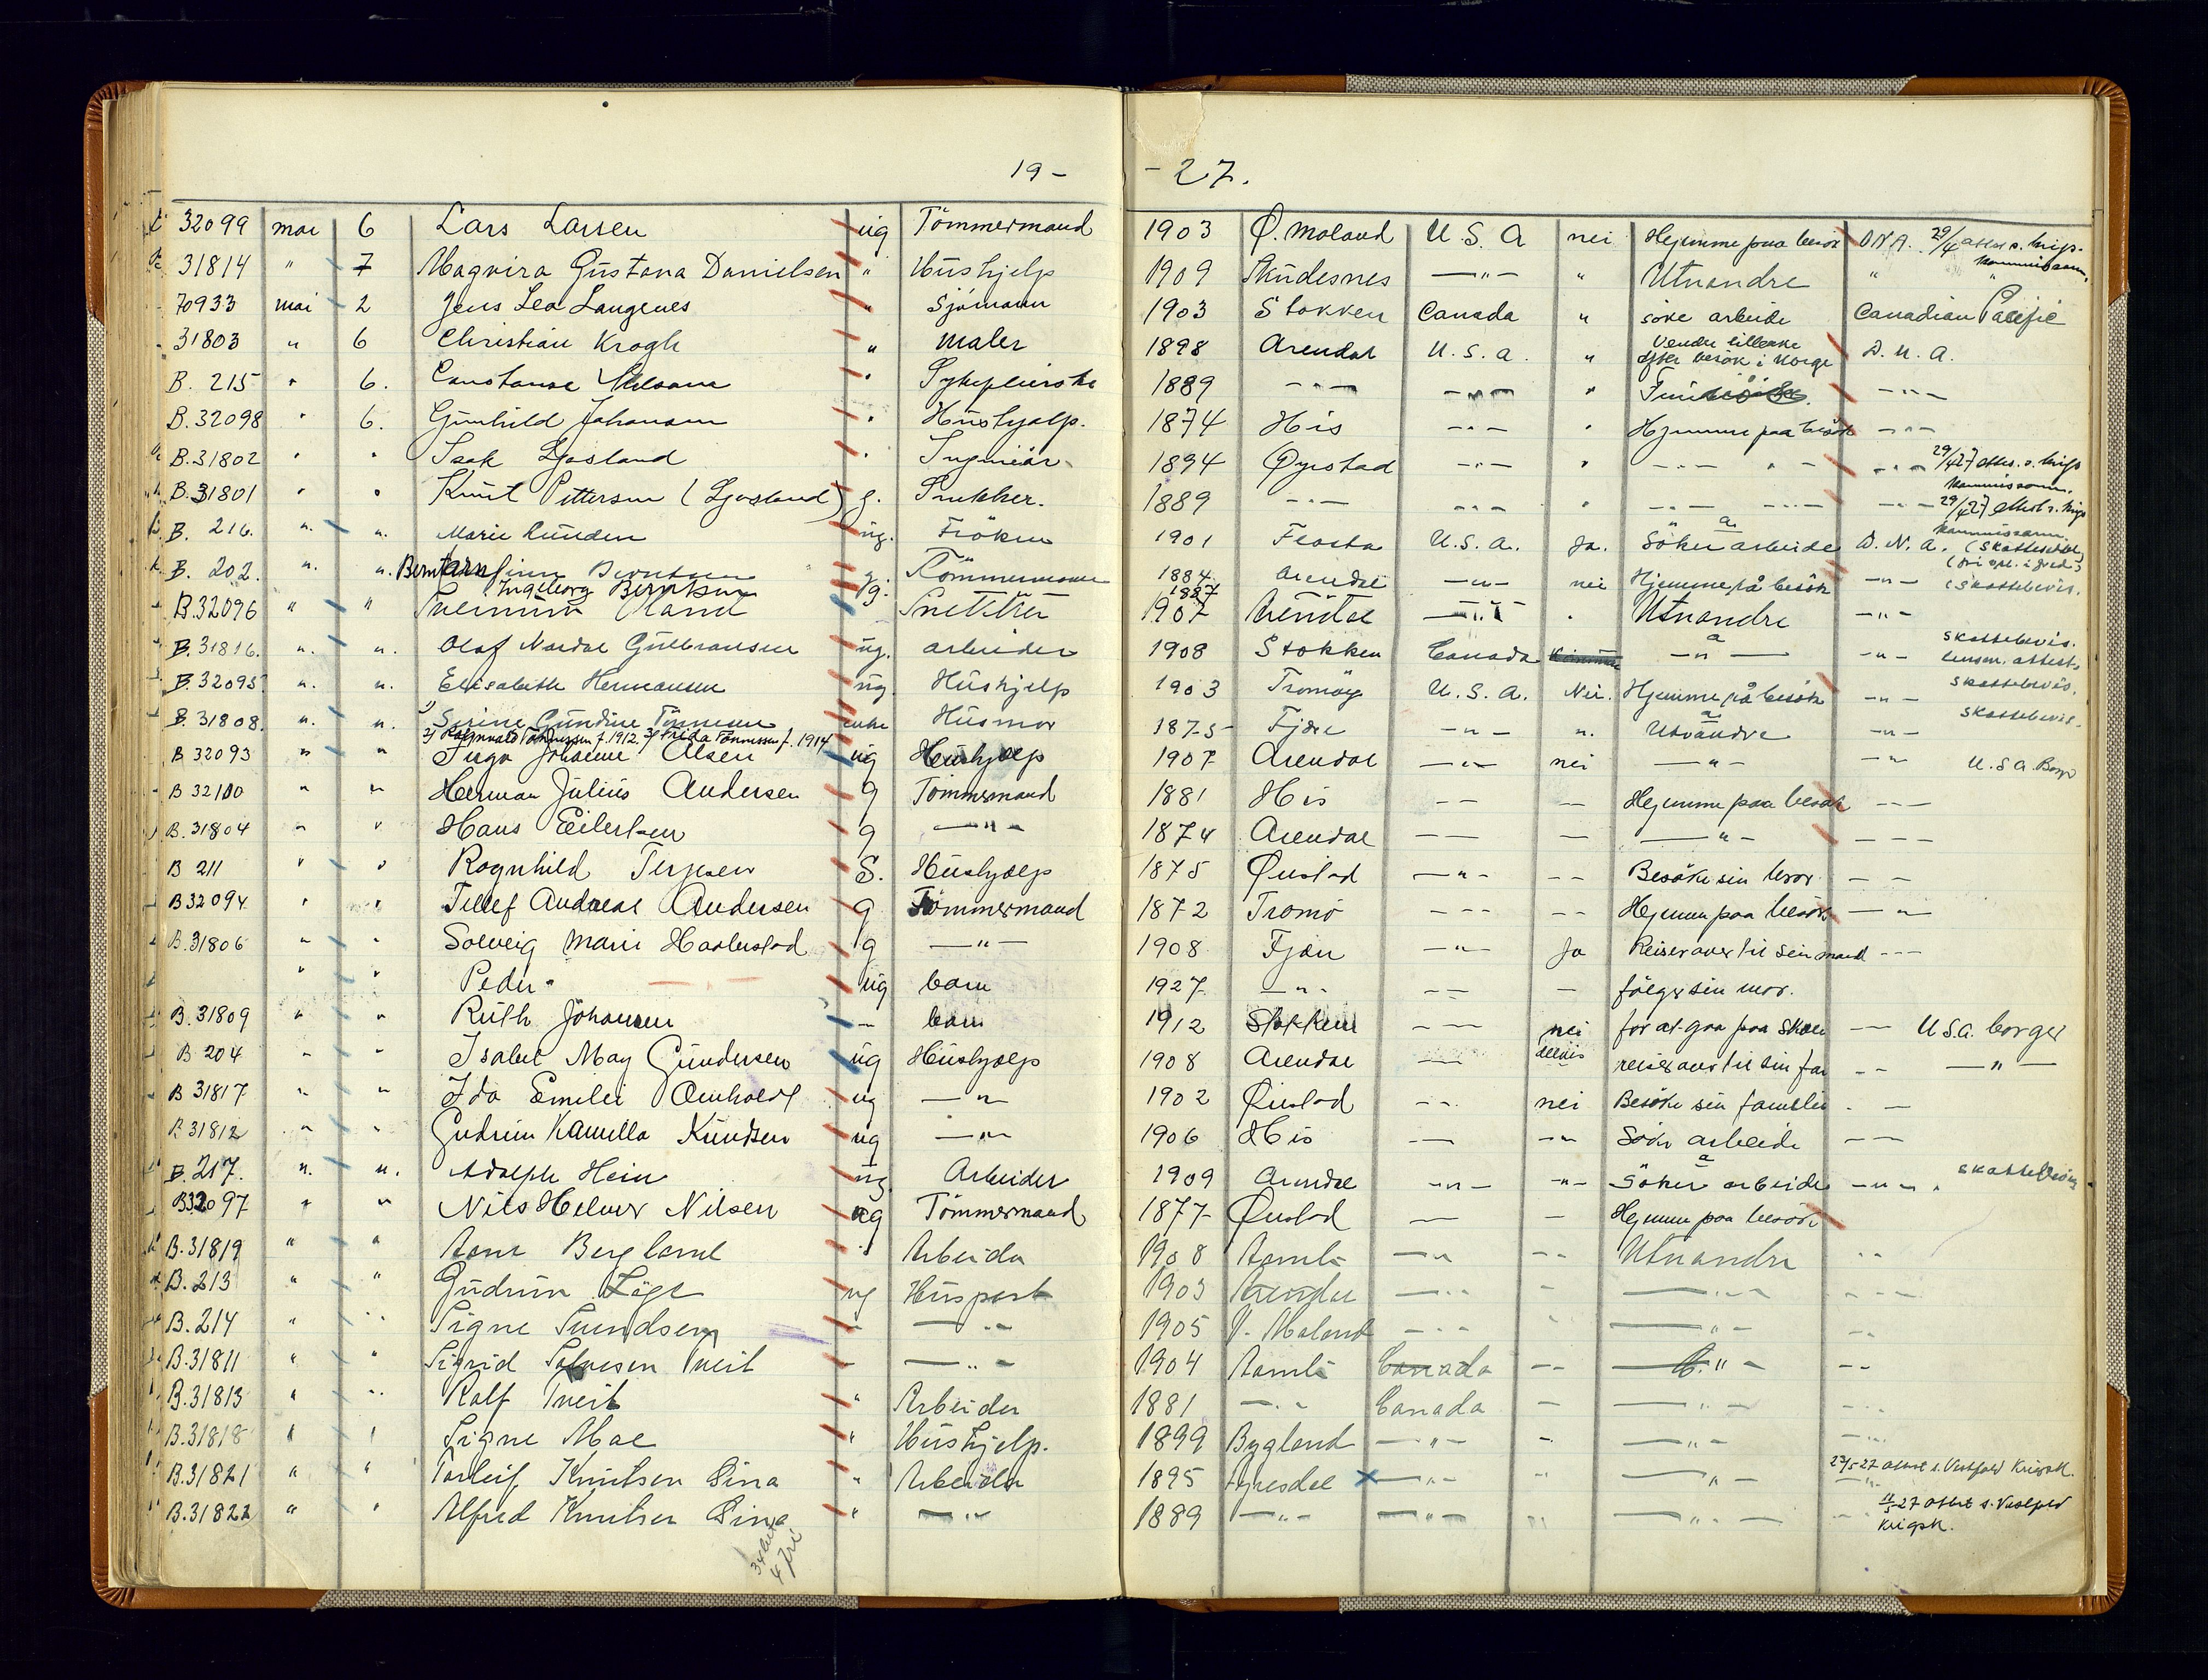 19 - - 27.
32099 mai 6 Lars Larsen ug Tömmermand 1903 Ø. Moland U.S.A nei Hejemme paa besök D.N.A. 29/4 attest s. krigs-kommissaren
31814 " 7 Magnira Gustava Danielsen " Hushjelp 1909 Skudesnes —"— " Utvandre " "
70933 mai 2 Jens Leo Langenes " Sjömann 1903 Stokken Canada " söke arbeide Canadian Pacific
31803 " 6 Christian Krogh " maler 1898 Arendal U.S.A. " Vende tilbake efter besök i Norge D.N.A.
B. 215 " 6. Constanse " Sykepleierske 1889 —"— —"— " —"—
B. 32098 " 6. Gunhild Johansen " Hushjælp. 1874 His —"— " Hjemme paa besök —"—
B. 31802 " " Isak Ljosland " Ingeniör 1894 Øyestad —"— " —"— —"— 29/4 27 attes. s. krigskommissaren.
B. 31801 " " Knut Pettersen (Ljosland) g. Snekker. 1889 —"— —"— " —"— —"— 29/4 27 attest s. krigskommissaren
B. 216. " " Marie Knudsen ug. Fröken 1901 Flosta U.S.A. Ja. Söker arbeide D.N.A. (Skatteseddel
B. 202. " " Berntsen g. Tömmermann 1884 Arendal —"— nei Hjemme på besök —"— (Skattebevis.
Ingeborg Berntsen g. 1887
B. 32096 " " Oland Snekker 1907 Arendal —"— " Utvandre —"—
B. 31816. " " Olaf Nordal Gulbransen ug. arbeider 1908 Stokken Canada —"— —"— skattebevis. lensm. attest.
B. 32095. " " Elisabeth Hermansen ug. Hushjelp 1903 Tromöy U.S.A. Nei. Hjemme på besök —"— skattebevis.
B. 31808. " " 1) Serine Gundine Tönnesen enke Husmor 1875 Fjære —"— ". Utvandre —"— skattebevis.
2) Ragnvald Tönnessen f. 1912. 3) Frida Tönnessen f. 1914
B 32093 " " Inga Johanne Olsen ug Hushjælp 1907 Arendal —"— nei —"— —"— U.S.A. Borg
B 32100 " " Herman Julius Andersen g Tömmermand 1881 His — — — — Hejemme paa besök — —
B. 31804 " " Hans Eilertsen g —"— 1874 Arendal — — — —"— — —
B 211 " " Ragnhild Terjesen S. Hushjælp 1875 Öiestad —"— — — Besöke sin bror — —
B 32094 " " Tellef Andreas Andersen g Tömmermand 1872 Tromö — — — — Hejemme paa besök — —
B. 31806 " " Solveig Marie Haaverstad g —"— 1908 Fjære —"— Ja Reiser over til sin mand — —
" " Peder " ug barn 1927 —"— — — — fölger sin mor.
B. 31809 " " Ruth Johansen — barn 1912 Stokken — — nei for at gaa paa skole — — U.S.A. borger
B 204 " " Isabel May Gundersen ug Hushjælp 1908 Arendal — delvis reiser over til sin far — — —"—
B 31817 " " Ida Emelie ug —"— 1902 Öiestad — — nei Besöke sin familie — —
B 31812 " " Gudrun Kamilla Knudsen ug —"— 1906 His — —"— Söke arbeide — —
B. 217. " ". Adolph Hein ug. Arbeider 1909 Arendal —"— —"— Söker arbeide —"— skattebevis
B 32097 " " Nils Helmer Nilsen ug Tömmermand 1877 Öiestad — — Hejemme paa besök
B. 31819 " " Berglund " Arbeider 1908 Aamli —"— — — Utvandre " "
B. 213 " " Gudrun ug Huspost 1903 Arendal —"— — —"— — —
B. 214 " " Signe Svendsen — —"— 1905 V. Moland —"— " —"— —"—
B. 31811 " " Sigrid Tveit — —"— 1904 Aamli Canada — — —"— — —
B. 31813 " " Rolf Tveit " Arbeider 1881 —"— Canada — —"— —"—
B. 31818 " " Signe Moe " Hushjelp. 1899 Bygland —"— — —"— —"—
B. 31821 " " Torleif Knutsen Sina " Arbeider 1895 Fyresdal x —"— " —"— 23/5-27 attest s. Vestfold Krigsk.
B. 31822 " " Alfred Knutsen Sina " —"— 1889 —"— —"— " —"— —"— 11/5-27 attest s. Vestfold Krigsk.